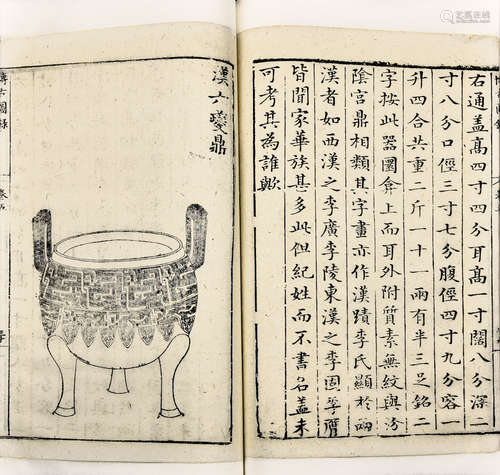 右通盖髙四寸四分耳髙一寸闊八分深二
寸八分口徑三寸七分腹徑四寸九分容一
升四合共重二斤一十一兩有半三足銘二
字按此器圜弇上而耳外附質素無紋與汾
陰宫鼎相類其字畫亦作漢蹟李氏顯於两
漢者如西漢之李廣李陵東漢之李固李膺
皆閒家華族甚多此但紀姓而不書名盖未
可考其為誰歟
漢六夔鼎